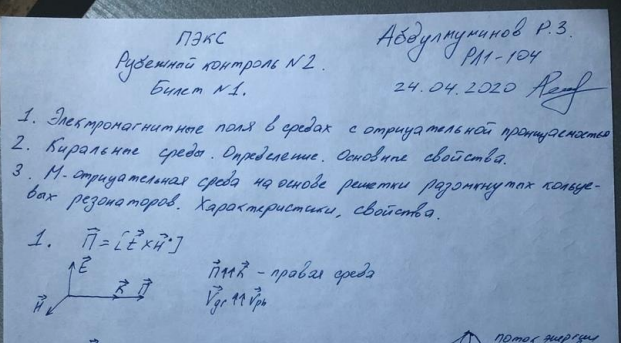 ПЭКС
Абдулмуминов Р.З.
Рубежный контроль №2.
РЛ1-104
Билет №1.
24.04.2020
1. Электромагнитные поля в средах с отрицательной проницаемостью
2. Киральные среды. Определение. Основные свойства.
3. М-отрицательная среда на основе решетки разомкнутых кольце-
вых резонаторов. Характеристики, свойства.
1. П⃗ = [E⃗ × H⃗*]
E⃗
П⃗↑↑k⃗ - правая среда
H⃗ k⃗ П⃗
V⃗gr↑↑V⃗ph
поток энергии